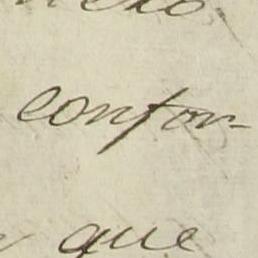 confor-
que